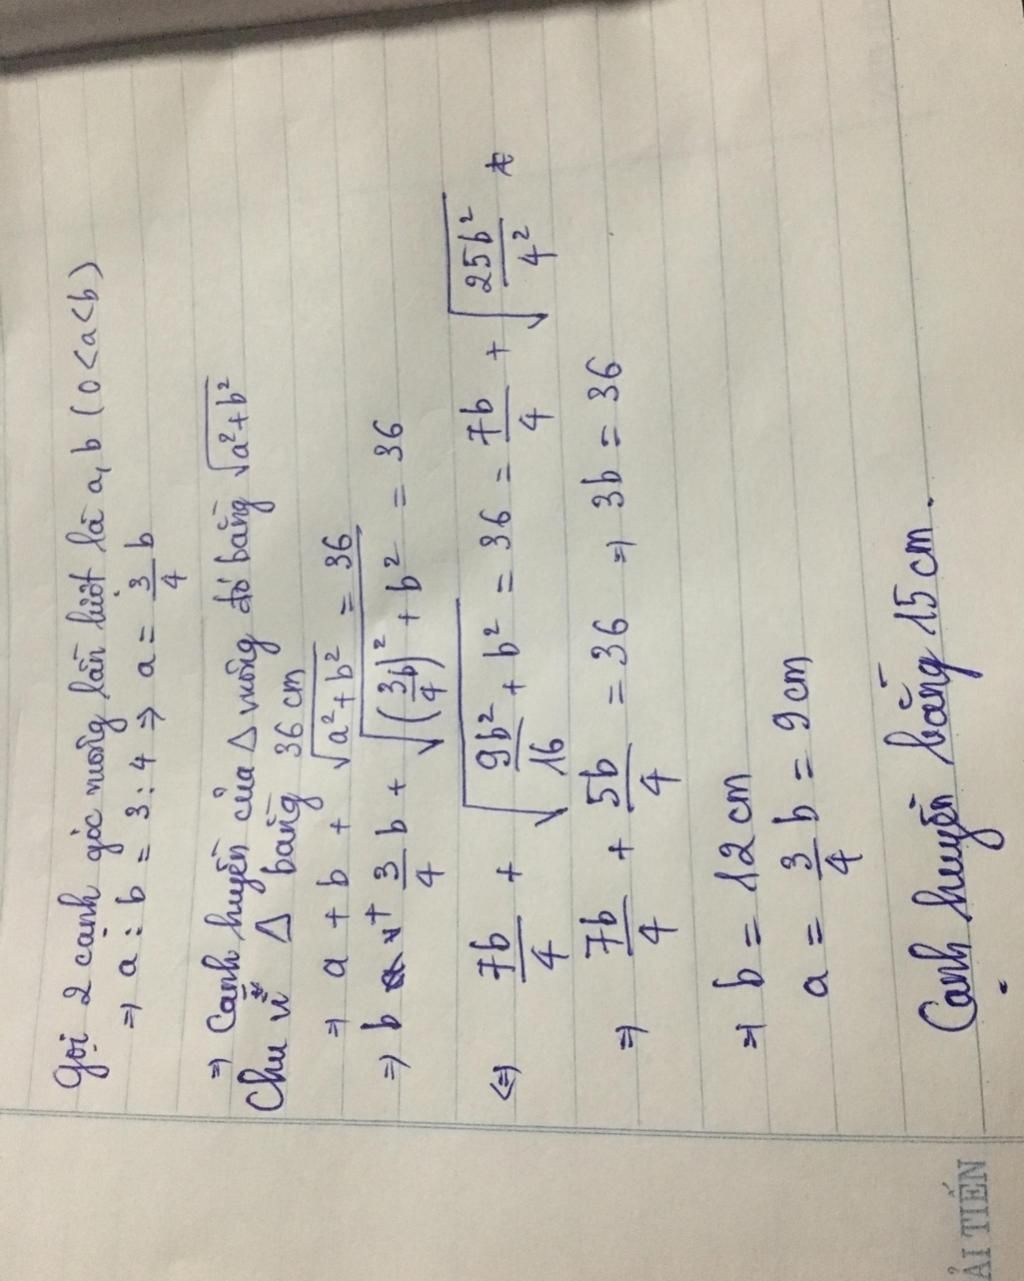 Gọi 2 cạnh góc vuông lần lượt là a, b (0 < a < b)
⇒ a : b = 3 : 4 ⇒ a = 3/4 b
⇒ Cạnh huyền của Δ vuông đó bằng √(a² + b²)
Chu vi Δ bằng 36 cm
⇒ a + b + √(a² + b²) = 36
⇒ b + 3/4 b + √((3b/4)² + b²) = 36
⇔ 7b/4 + √(9b²/16 + b²) = 36 = 7b/4 + √(25b²/4²)
⇒ 7b/4 + 5b/4 = 36 ⇒ 3b = 36
⇒ b = 12 cm
a = 3/4 b = 9 cm
Cạnh huyền bằng 15 cm.
ẢI TIẾN